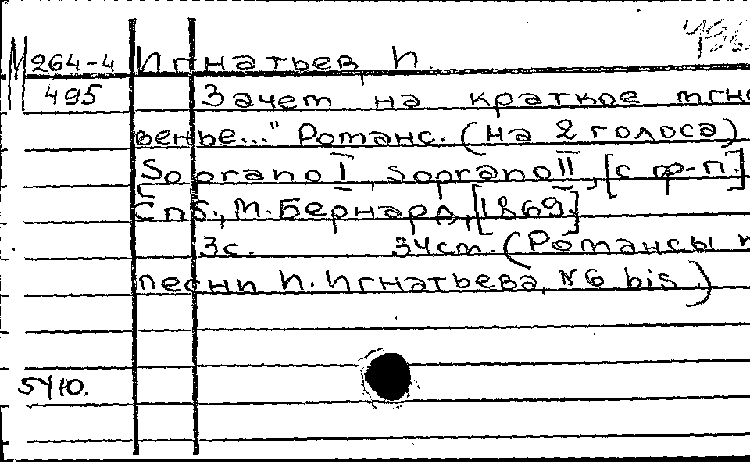 496
М 264-4 Игнатьев, И.
495 Зачем на краткое мгно
венье..." Романс. (На 2 голоса)
Soprano I, soprano II, [с ф-п.]
Спб., М. Бернард, [1869].
3с. 34см. (Романсы и
песни И. Игнатьева, №6 bis.)